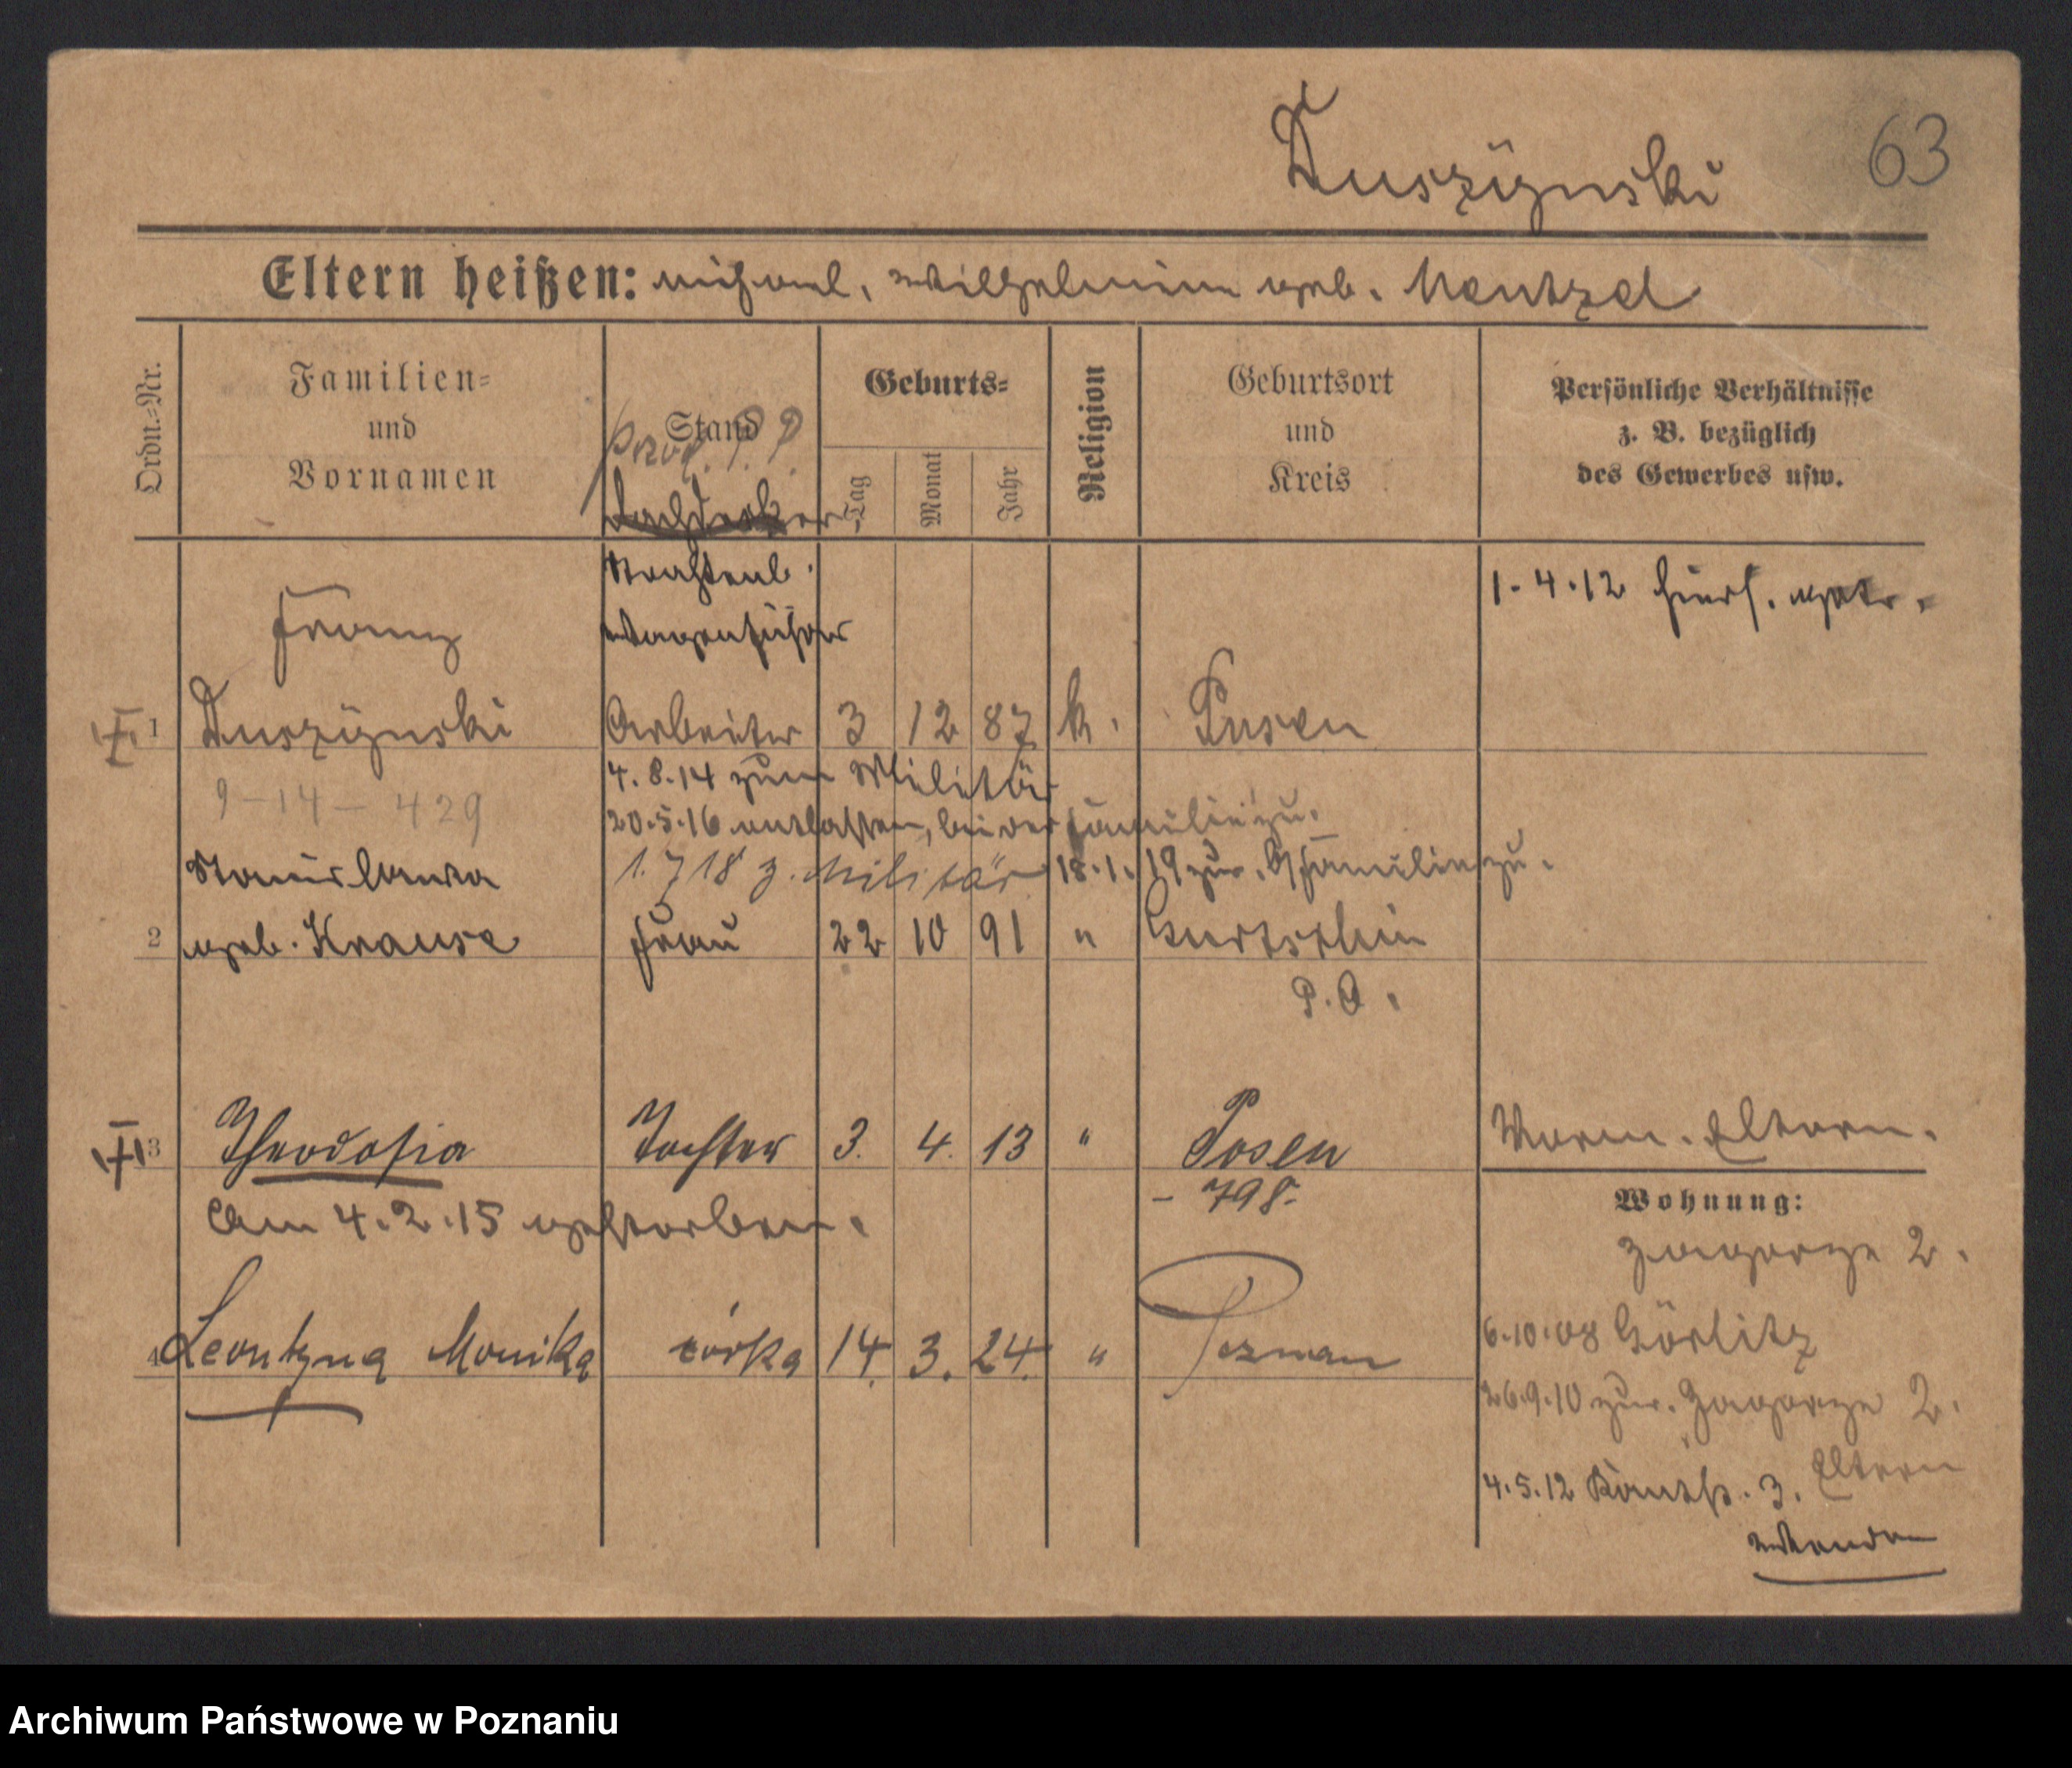 63
Duszÿnski
Eltern heißen: Michael, Wilhelmine geb. Mentzel
Ordn.-Nr.
Familien-
und
Vornamen
Stand
Geburts-
Tag
Monat
Jahr
Religion
Geburtsort
und
Kreis
Persönliche Verhältnisse
z. B. bezüglich
des Gewerbes usw.
Dachdecker
Straßenb.
Wagenführer
1.4.12 hiers. getr.
Franz
1 Duszÿnski Arbeiter 3 12 87 k. Posen
4.8.14 zum Militär
9-14-429
20.5.16 entlassen, bei der Familie zu.
1.7 18 z. Militär 18.1.19 zur. b/Familie zu.
Stanislawa
2 geb. Krause Frau 22 10 91 " Gurtschin
P.O.
3 Theodosia Tochter 3. 4. 13 " Posen
- 798.
Am 4.2.15 gestorben.
4 Leontyna Monika córka 14. 3. 24. " Poznań
Worm. Eltern.
Wohnung:
Zagorze 2.
6.10.08 Görlitz
26.9.10 zur. Zagorze 2.
Eltern
4.5.12 3.
Wenden
Archiwum Państwowe w Poznaniu